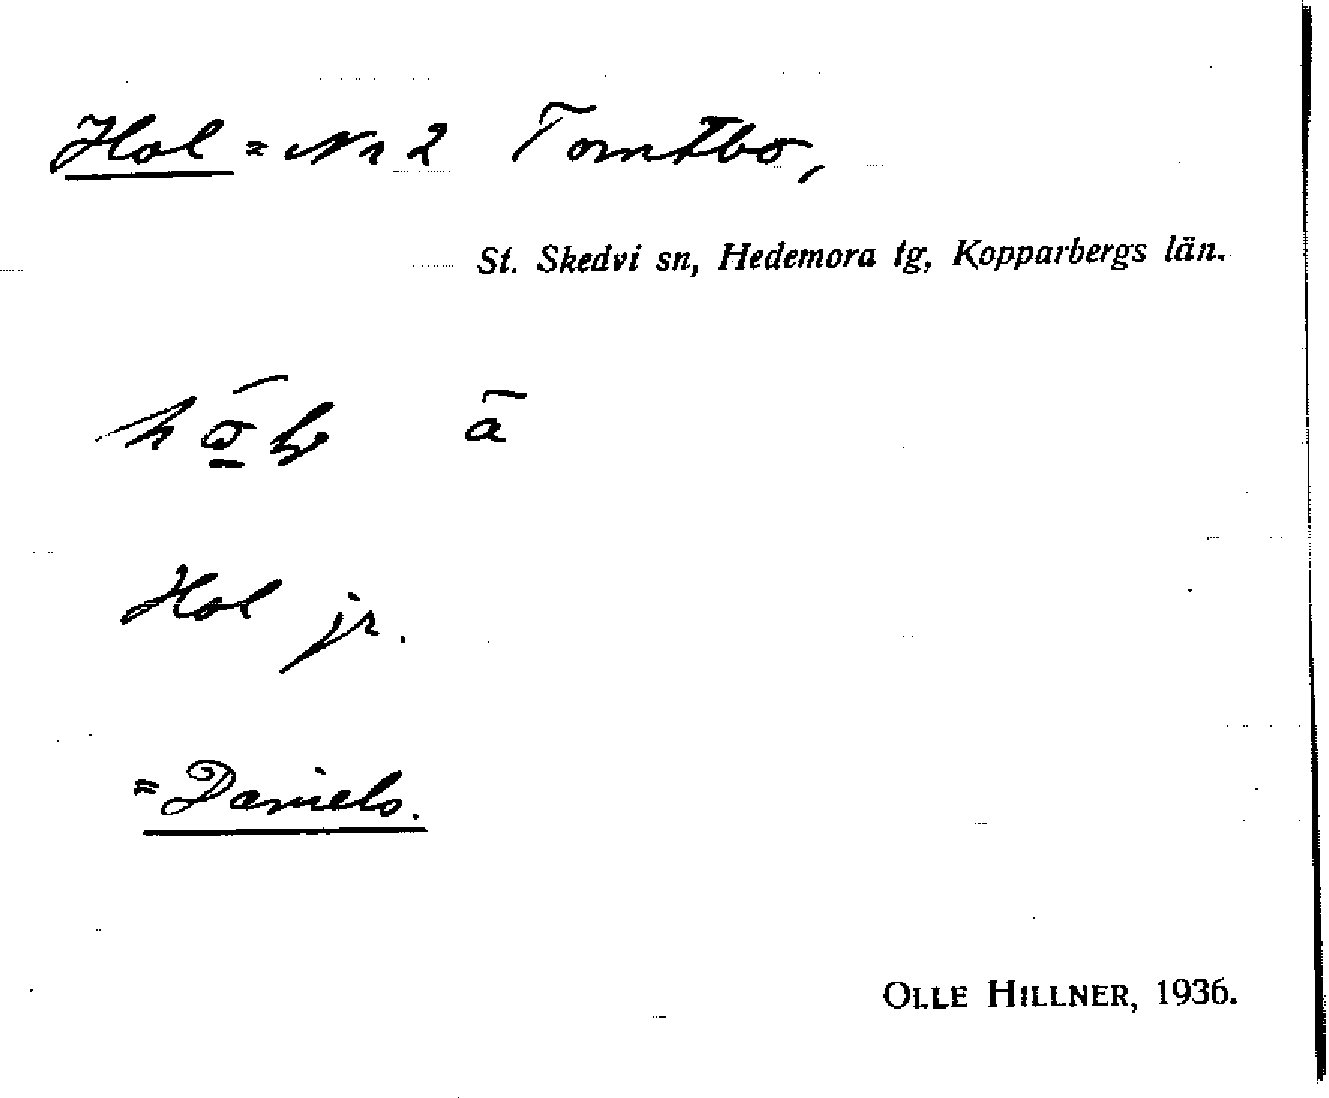 Hol = Nr 2 Tomtbo,
St. Skedvi sn, Hedemora tg, Kopparbergs län.
ā
Hol jr.
= Daniels.
OLLE HILLNER, 1936.